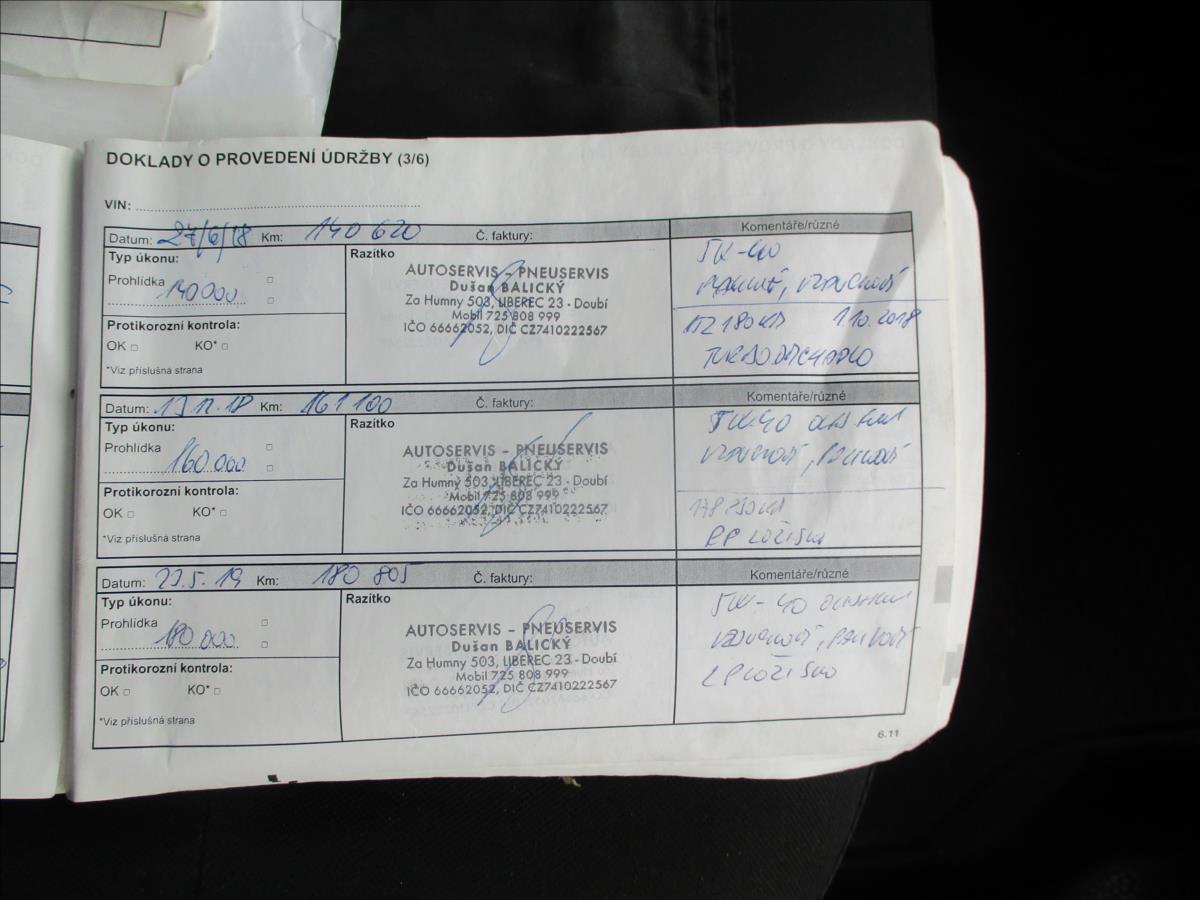 DOKLADY O PROVEDENÍ ÚDRŽBY (3/6)
VIN:
Datum: 27/6/18 Km: 140 620 Č. faktury: Komentáře/různé
Typ úkonu:
Prohlídka
140000
Protikorozní kontrola:
OK KO*
*Viz příslušná strana
Razítko
AUTOSERVIS - PNEUSERVIS
Dušan BALICKÝ
Za Humny 503, LIBEREC 23 - Doubí
Mobil 725 808 999
IČO 66662052, DIČ CZ7410222567
5W-40
1.10.2018
TURBODMYCHADLO
Datum: Km: 161 100 Č. faktury: Komentáře/různé
Typ úkonu:
Prohlídka
160 000
Protikorozní kontrola:
OK KO*
*Viz příslušná strana
Razítko
AUTOSERVIS - PNEUSERVIS
Dušan BALICKÝ
Za Humny 503, LIBEREC 23 - Doubí
Mobil 725 808 999
IČO 66662052, DIČ CZ7410222567
5W-40
PP LOŽISKO
Datum: 23.5.19 Km: 180 805 Č. faktury: Komentáře/různé
Typ úkonu:
Prohlídka
180 000
Protikorozní kontrola:
OK KO*
*Viz příslušná strana
Razítko
AUTOSERVIS - PNEUSERVIS
Dušan BALICKÝ
Za Humny 503, LIBEREC 23 - Doubí
Mobil 725 808 999
IČO 66662052, DIČ CZ7410222567
5W-40
LP LOŽISKO
6.11